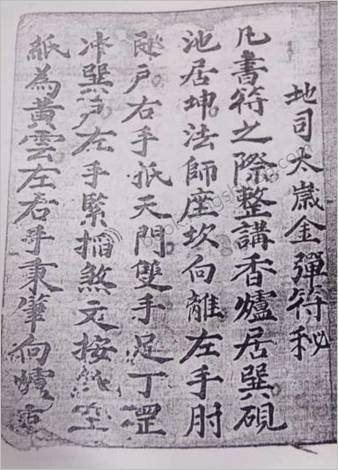 地司太歲金彈符秘
凡書符之際整講香爐居巽硯
池居坤法師座坎向離左手肘
戶右手抵天門雙手足丁罡
冲巽戶左手緊搯煞文按
紙為黃雲左右手秉筆向